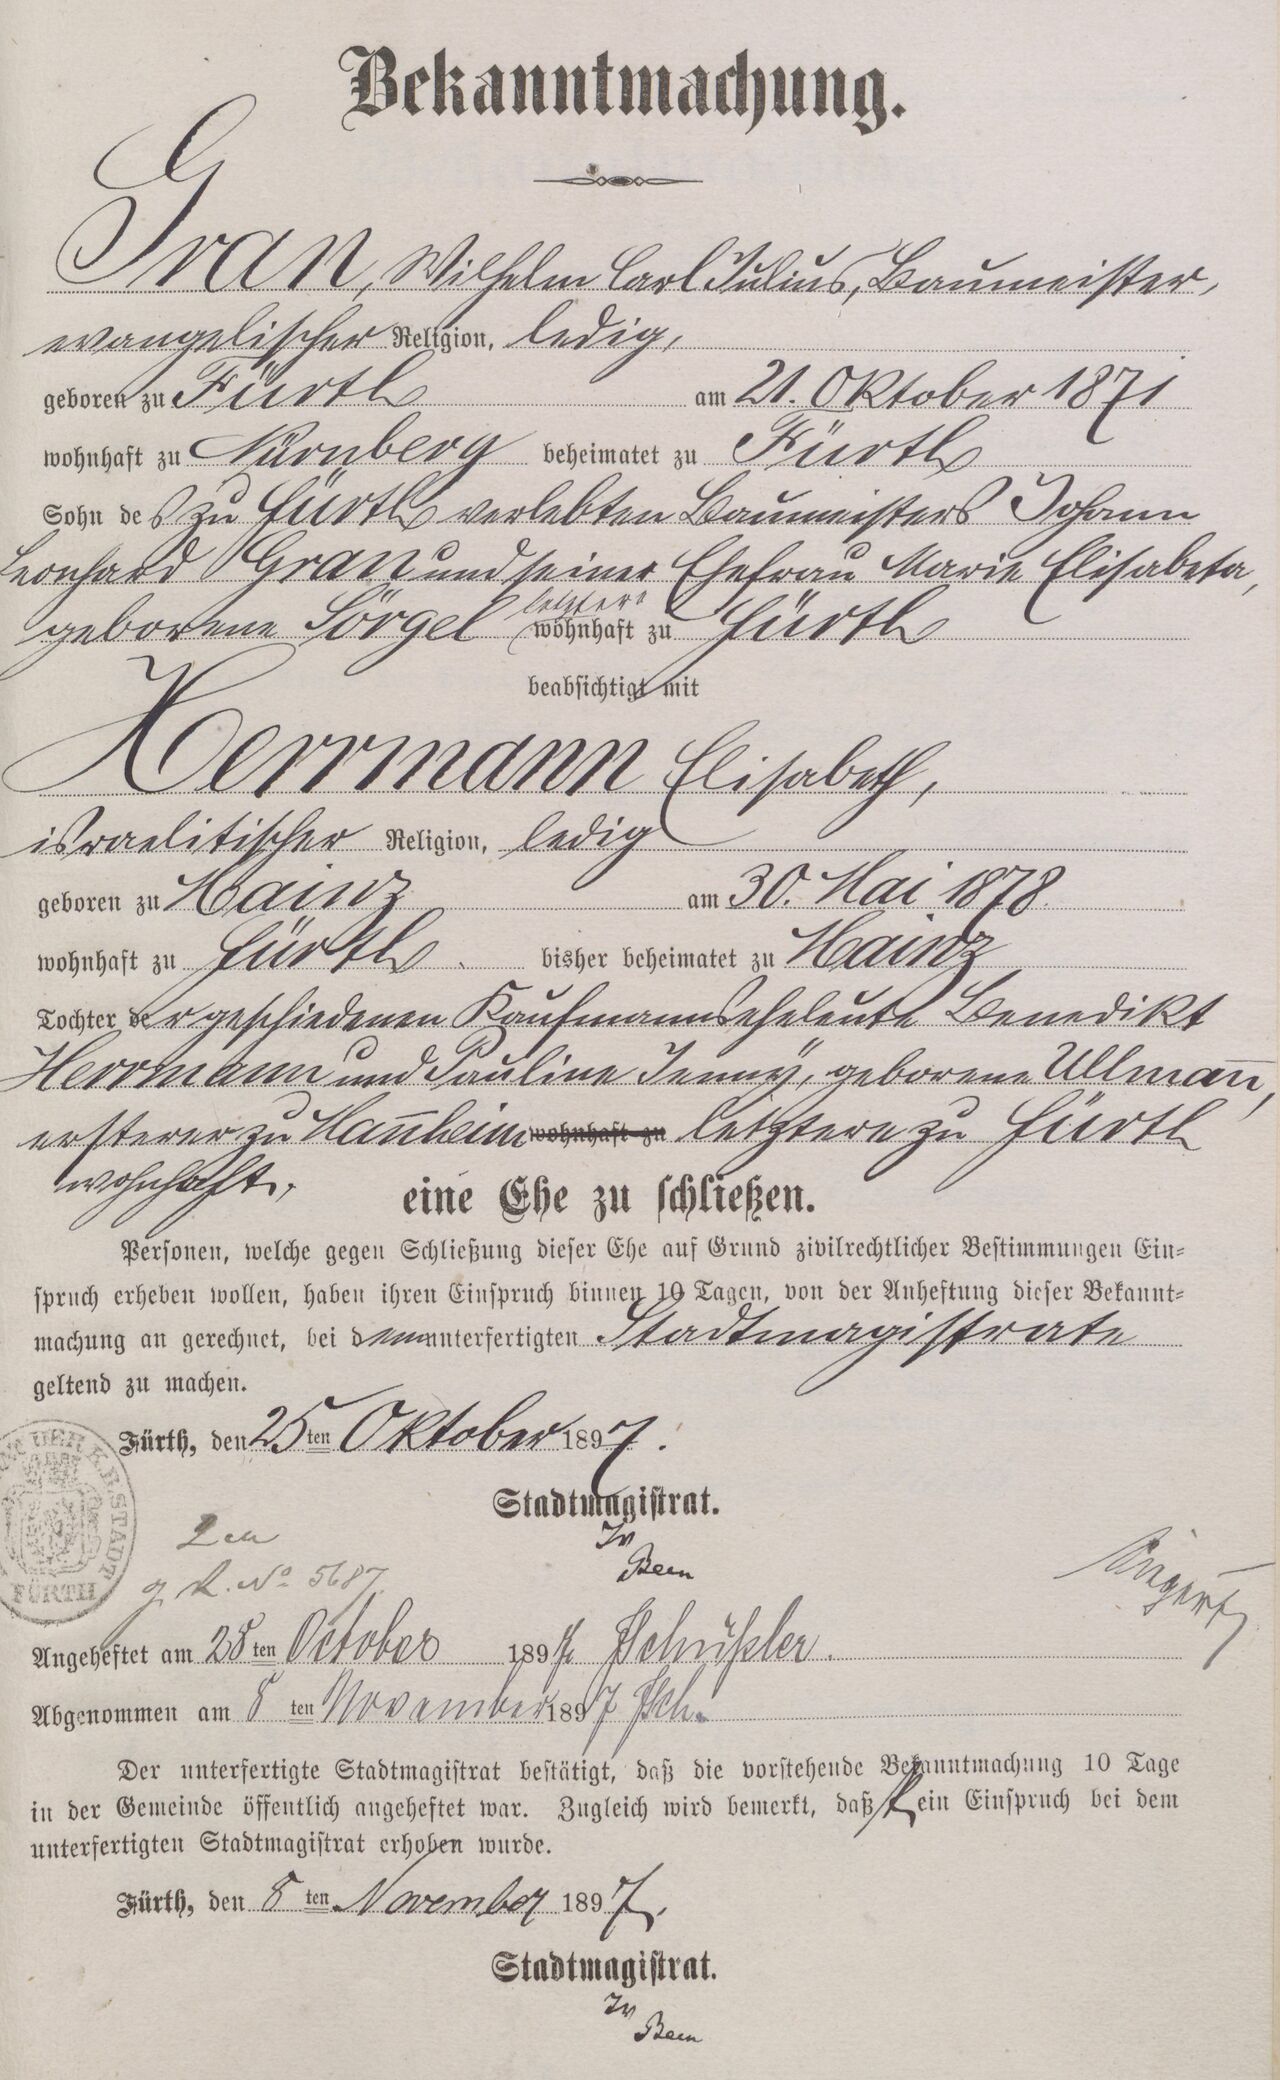 Bekanntmachung.
Gran, Wilhelm Carl Julius, Baumeister,
evangelischer Religion, ledig,
geboren zu Fürth am 21. Oktober 1871
wohnhaft zu Nürnberg beheimatet zu Fürth
Sohn des zu Fürth verlebten Baumeisters Johann
Leonhard Gran und seiner Ehefrau Marie Elisabeta,
geborene Sörgel letztere wohnhaft zu Fürth
beabsichtigt mit
Herrmann Elisabeth,
israelitischer Religion, ledig
geboren zu Mainz am 30. Mai 1878.
wohnhaft zu Fürth. bisher beheimatet zu Mainz
Tochter der geschiedenen Kaufmannseheleute Benedikt
Herrmann und Pauline Jenny, geborene Ullmañ,
ersterer zu Mañheim wohnhaft zu letztere zu Fürth
wohnhaft,
eine Ehe zu schließen.
Personen, welche gegen Schließung dieser Ehe auf Grund zivilrechtlicher Bestimmungen Ein-
spruch erheben wollen, haben ihren Einspruch binnen 10 Tagen, von der Anheftung dieser Bekannt-
machung an gerechnet, bei dem unterfertigten Stadtmagistrate
geltend zu machen.
Fürth, den 25ten Oktober 1897.
Stadtmagistrat.
FÜRTH
No 5687.
Angeheftet am 28ten October 1897
Abgenommen am 8ten November 1897 Sch.
Der unterfertigte Stadtmagistrat bestätigt, daß die vorstehende Bekanntmachung 10 Tage
in der Gemeinde öffentlich angeheftet war. Zugleich wird bemerkt, daß kein Einspruch bei dem
unterfertigten Stadtmagistrat erhoben wurde.
Fürth, den 8ten November 1897.
Stadtmagistrat.